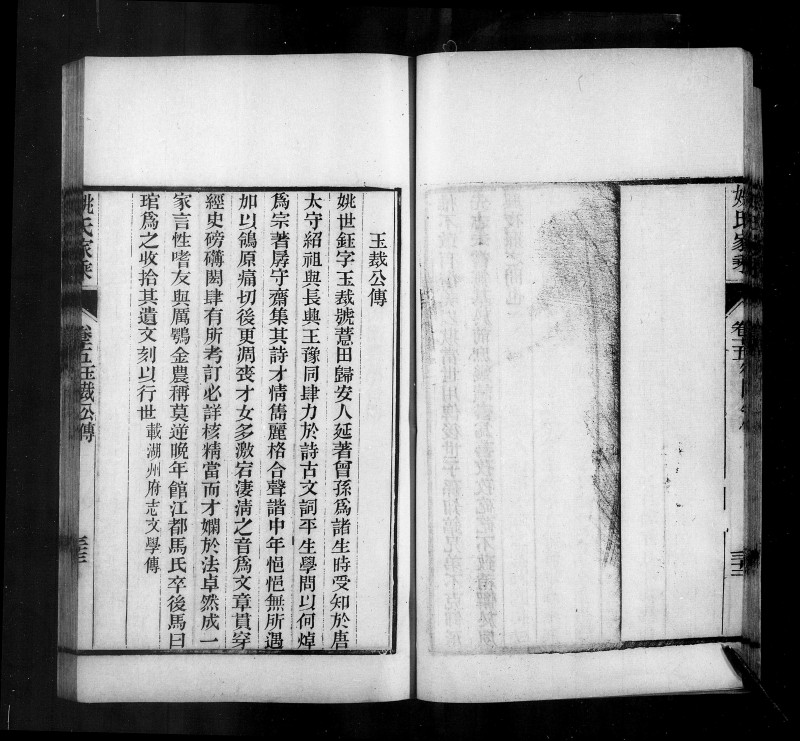 姚氏家乘
卷十五
玉裁公傳
姚世鈺字玉裁號薏田歸安人延著曾孫爲諸生時受知於唐
太守紹祖與長興王豫同肆力於詩古文詞平生學問以何焯
爲宗著孱守齋集其詩才情雋麗格合聲諧中年悒悒無所遇
加以鴒原痛切後更凋喪才女多激宕淒淸之音爲文章貫穿
經史磅礴閎肆有所考訂必詳核精當而才嫻於法卓然成一
家言性嗜友與厲鶚金農稱莫逆晚年館江都馬氏卒後馬曰
琯爲之收拾其遺文刻以行世 載湖州府志文學傳
姚氏家乘
卷十五玉裁公傳
三十三